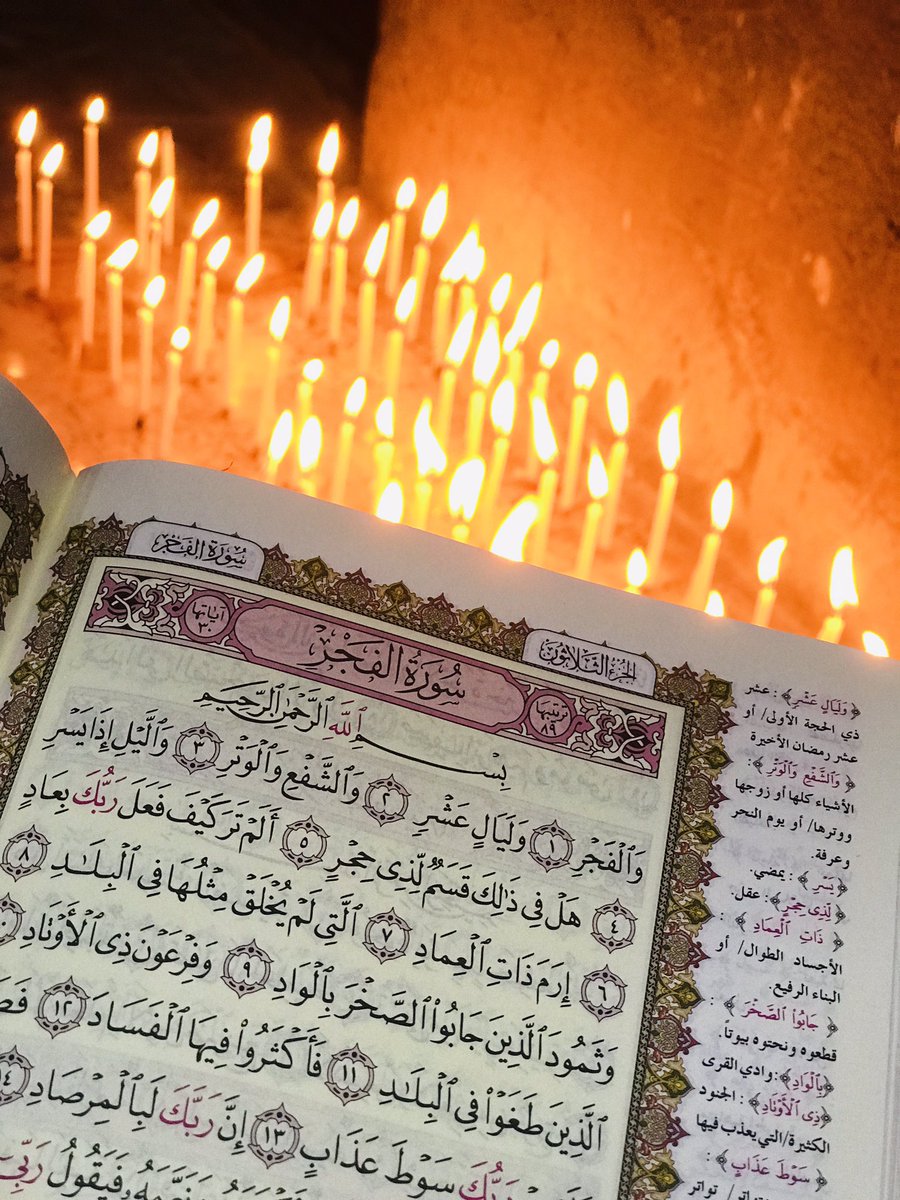 سُورَةُ الفَجۡرِ
الجُزءُ الثَّلَاثُونَ
ترتيبها ٨٩
سُورَةُ الفَجۡرِ
آياتها ٣٠
بِسۡمِ ٱللَّهِ ٱلرَّحۡمَٰنِ ٱلرَّحِيمِ
وَٱلۡفَجۡرِ ١ وَلَيَالٍ عَشۡرٖ ٢ وَٱلشَّفۡعِ وَٱلۡوَتۡرِ ٣ وَٱلَّيۡلِ إِذَا يَسۡرِ
٤ هَلۡ فِي ذَٰلِكَ قَسَمٞ لِّذِي حِجۡرٍ ٥ أَلَمۡ تَرَ كَيۡفَ فَعَلَ رَبُّكَ بِعَادٍ
٦ إِرَمَ ذَاتِ ٱلۡعِمَادِ ٧ ٱلَّتِي لَمۡ يُخۡلَقۡ مِثۡلُهَا فِي ٱلۡبِلَٰدِ ٨
وَثَمُودَ ٱلَّذِينَ جَابُواْ ٱلصَّخۡرَ بِٱلۡوَادِ ٩ وَفِرۡعَوۡنَ ذِي ٱلۡأَوۡتَادِ
ٱلَّذِينَ طَغَوۡاْ فِي ٱلۡبِلَٰدِ ١١ فَأَكۡثَرُواْ فِيهَا ٱلۡفَسَادَ ١٢
رَبُّكَ سَوۡطَ عَذَابٍ ١٣ إِنَّ رَبَّكَ لَبِٱلۡمِرۡصَادِ ١٤
فَيَقُولُ رَبِّيٓ
﴿وَلَيَالٍ عَشۡرٖ﴾: عشر
ذي الحجة الأولى/ أو
عشر رمضان الأخيرة
﴿وَٱلشَّفۡعِ وَٱلۡوَتۡرِ﴾:
الأشياء كلها أو زوجها
ووترها/ أو يوم النحر
وعرفة.
﴿يَسۡرِ﴾: يمضي.
﴿لِّذِي حِجۡرٍ﴾: عقل.
﴿ذَاتِ ٱلۡعِمَادِ﴾:
الأجساد الطوال/ أو
البناء الرفيع.
﴿جَابُواْ ٱلصَّخۡرَ﴾:
قطعوه ونحتوه بيوتا.
﴿بِٱلۡوَادِ﴾: وادي القرى
﴿ذِي ٱلۡأَوۡتَادِ﴾: الجنود
الكثيرة/ التي يعذب فيها
﴿سَوۡطَ عَذَابٍ﴾: